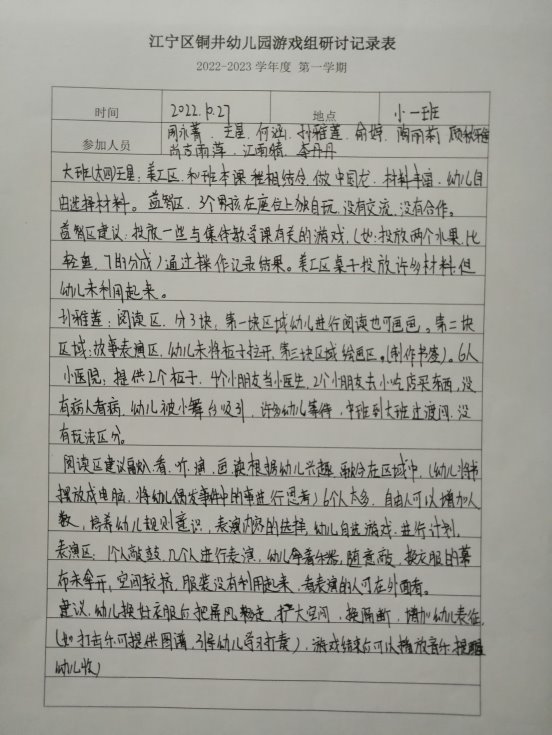 江宁区铜井幼儿园游戏组研讨记录表
2022-2023学年度 第一学期
时间 2022.10.27 地点 小一班
参加人员 周永菁、王星、何涵、孙雅莲、俞婷、陶丽莉、顾
尚古雨萍、江雨晴、李丹丹
大班(大四)王星:美工区,和班本课程相结合,做中国龙,材料丰富,幼儿自
由选择材料。益智区,3个男孩在座位上独自玩,没有交流,没有合作。
益智区建议:投放一些与集体教学课有关的游戏,(如:投放两个水果,比
轻重,7的分成)通过操作记录结果。美工区桌子投放许多材料,但
幼儿未利用起来。
孙雅莲:阅读区,分3块,第一块区域幼儿进行阅读也可画画。第二块
区域:故事表演区,幼儿未将柜子拉开,第三块区域绘画区。(制作书签)。6人
小医院:提供2个柜子,4个小朋友当小医生,2个小朋友去小吃店买东西,没
有病人看病,幼儿被小舞台吸引,许多幼儿等待,中班到大班过渡问,没
有玩法区分。
阅读区建议融入看、听、演、画、读根据幼儿兴趣,融合在区域中,(幼儿将书
摆放成电脑,将幼儿偶发事件中的事进行思考)6个人太多,自由人可以增加人
数,培养幼儿规则意识,表演内容的选择,幼儿自选游戏,进行计划。
表演区:1个人敲鼓,几个人进行表演,幼儿拿着乐器,随意敲,换衣服的幕
布未拿开,空间较挤,服装没有利用起来,看表演的人可在外面看。
建议:幼儿换好衣服后把屏风搬走,扩大空间,换隔断,增加幼儿表征,
(如打击乐可提供图谱,引导幼儿学习打奏),游戏结束后可以播放音乐,提醒
幼儿收)